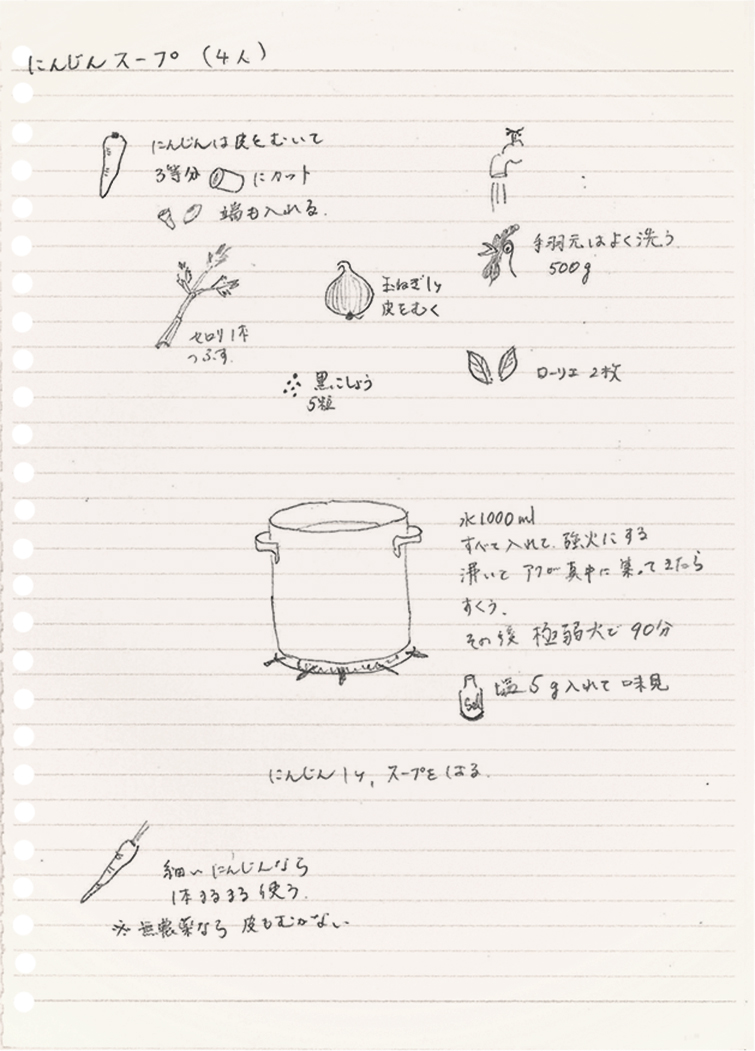 にんじんスープ（4人）
にんじんは皮をむいて
3等分 にカット
端も入れる.
手羽元はよく洗う
500g
セロリ1本
つぶす.
玉ねぎ1ヶ
皮をむく
黒こしょう
5粒
ローリエ 2枚
水1000ml
すべて入れて、強火にする
沸いて アクが真中に集ってきたら
すくう.
その後 極弱火で 90分
Salt
塩5g入れて 味見
にんじん1ヶ, スープをはる.
細いにんじんなら
1本まるまる使う.
※無農薬なら 皮もむかない